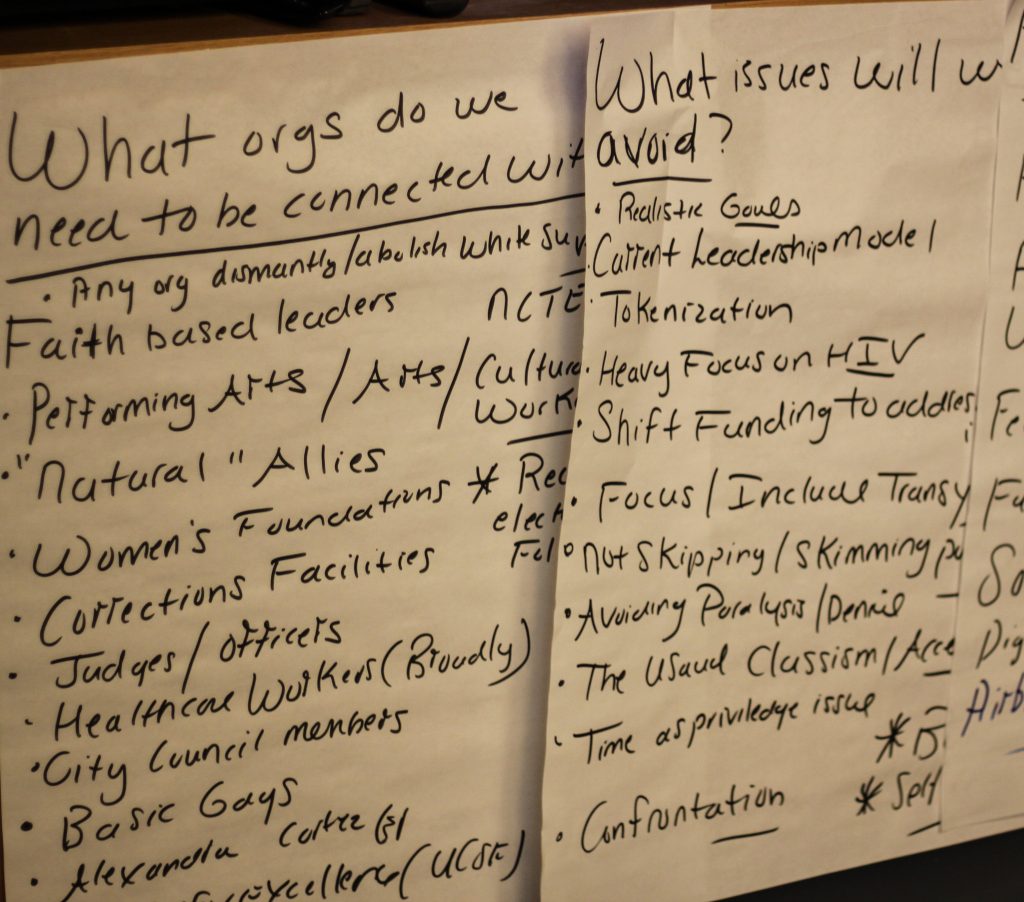 What orgs do we
need to be connected wit
• Any org dismantly/abolish white su
Faith based leaders NCTE
• Performing Arts / Arts / Cultura
Work
• "Natural" Allies
• Women's Foundations * Rec
elect
Fol
• Corrections Facilities
• Judges / officers
• Healthcare Workers (Broadly)
• City Council members
• Basic Gays
• Alexandra Cortez
Excellence (UCSF)
What issues will w
avoid?
• Realistic Goals
• Current Leadership Model
• Tokenization
• Heavy Focus on HIV
• Shift Funding to addres
• Focus / Include Trans
• Not Skipping / Skimming
• Avoiding Paralysis /
• The Usaul Classism / Acce
• Time as priviledge issue
• Confrontation * Self
Fe
Fu
So
Dig
Airb